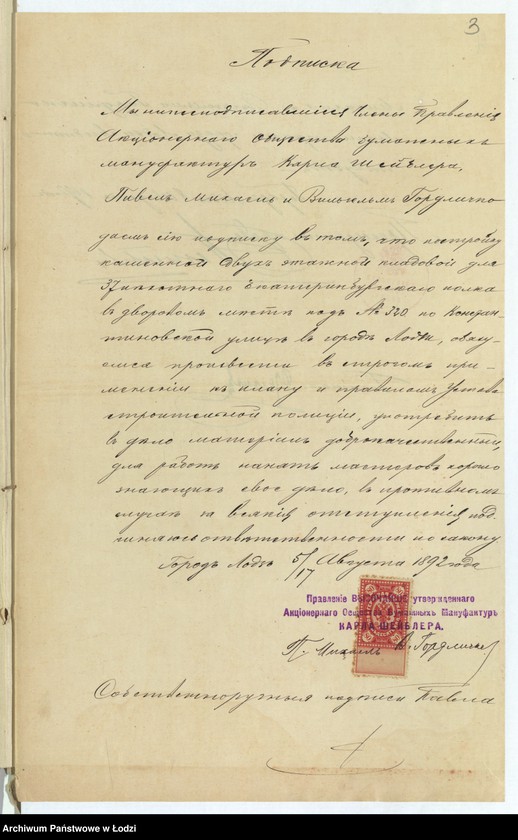 3
Подписка
Мы нижеподписавшіеся Члены Правленія
Акціонернаго Общества бумажныхъ
мануфактуръ Карла Шейблера,
Павелъ Михаель и Вильгельмъ Гордличко
даемъ сію подписку въ томъ, что постройку
каменной двухъ этажной кладовой для
37 пѣхотнаго Екатеринбургскаго полка
въ дворовомъ мѣстѣ подъ № 320 по Констан
тиновской улицѣ въ городѣ Лодзи, обязу-
емся произвести въ строгомъ при-
мѣненіи къ плану и правиламъ Устава
строительной полиціи, употребить
въ дѣло матеріалъ доброкачественный,
для работъ нанять мастеровъ хорошо
знающихъ свое дѣло, въ противномъ
случаѣ за всякія отступленія под
чиняюсь отвѣтственности по закону
Городъ Лодзь 5/17 Августа 1892 года
Правленіе ВЫСОЧАЙШЕ утвержденнаго
Акціонернаго Общества Бумажныхъ Мануфактуръ
КАРЛА ШЕЙБЛЕРА.
П. Михаель В. Гордличко
Собственноручныя подписи Павла
Archiwum Państwowe w Łodzi